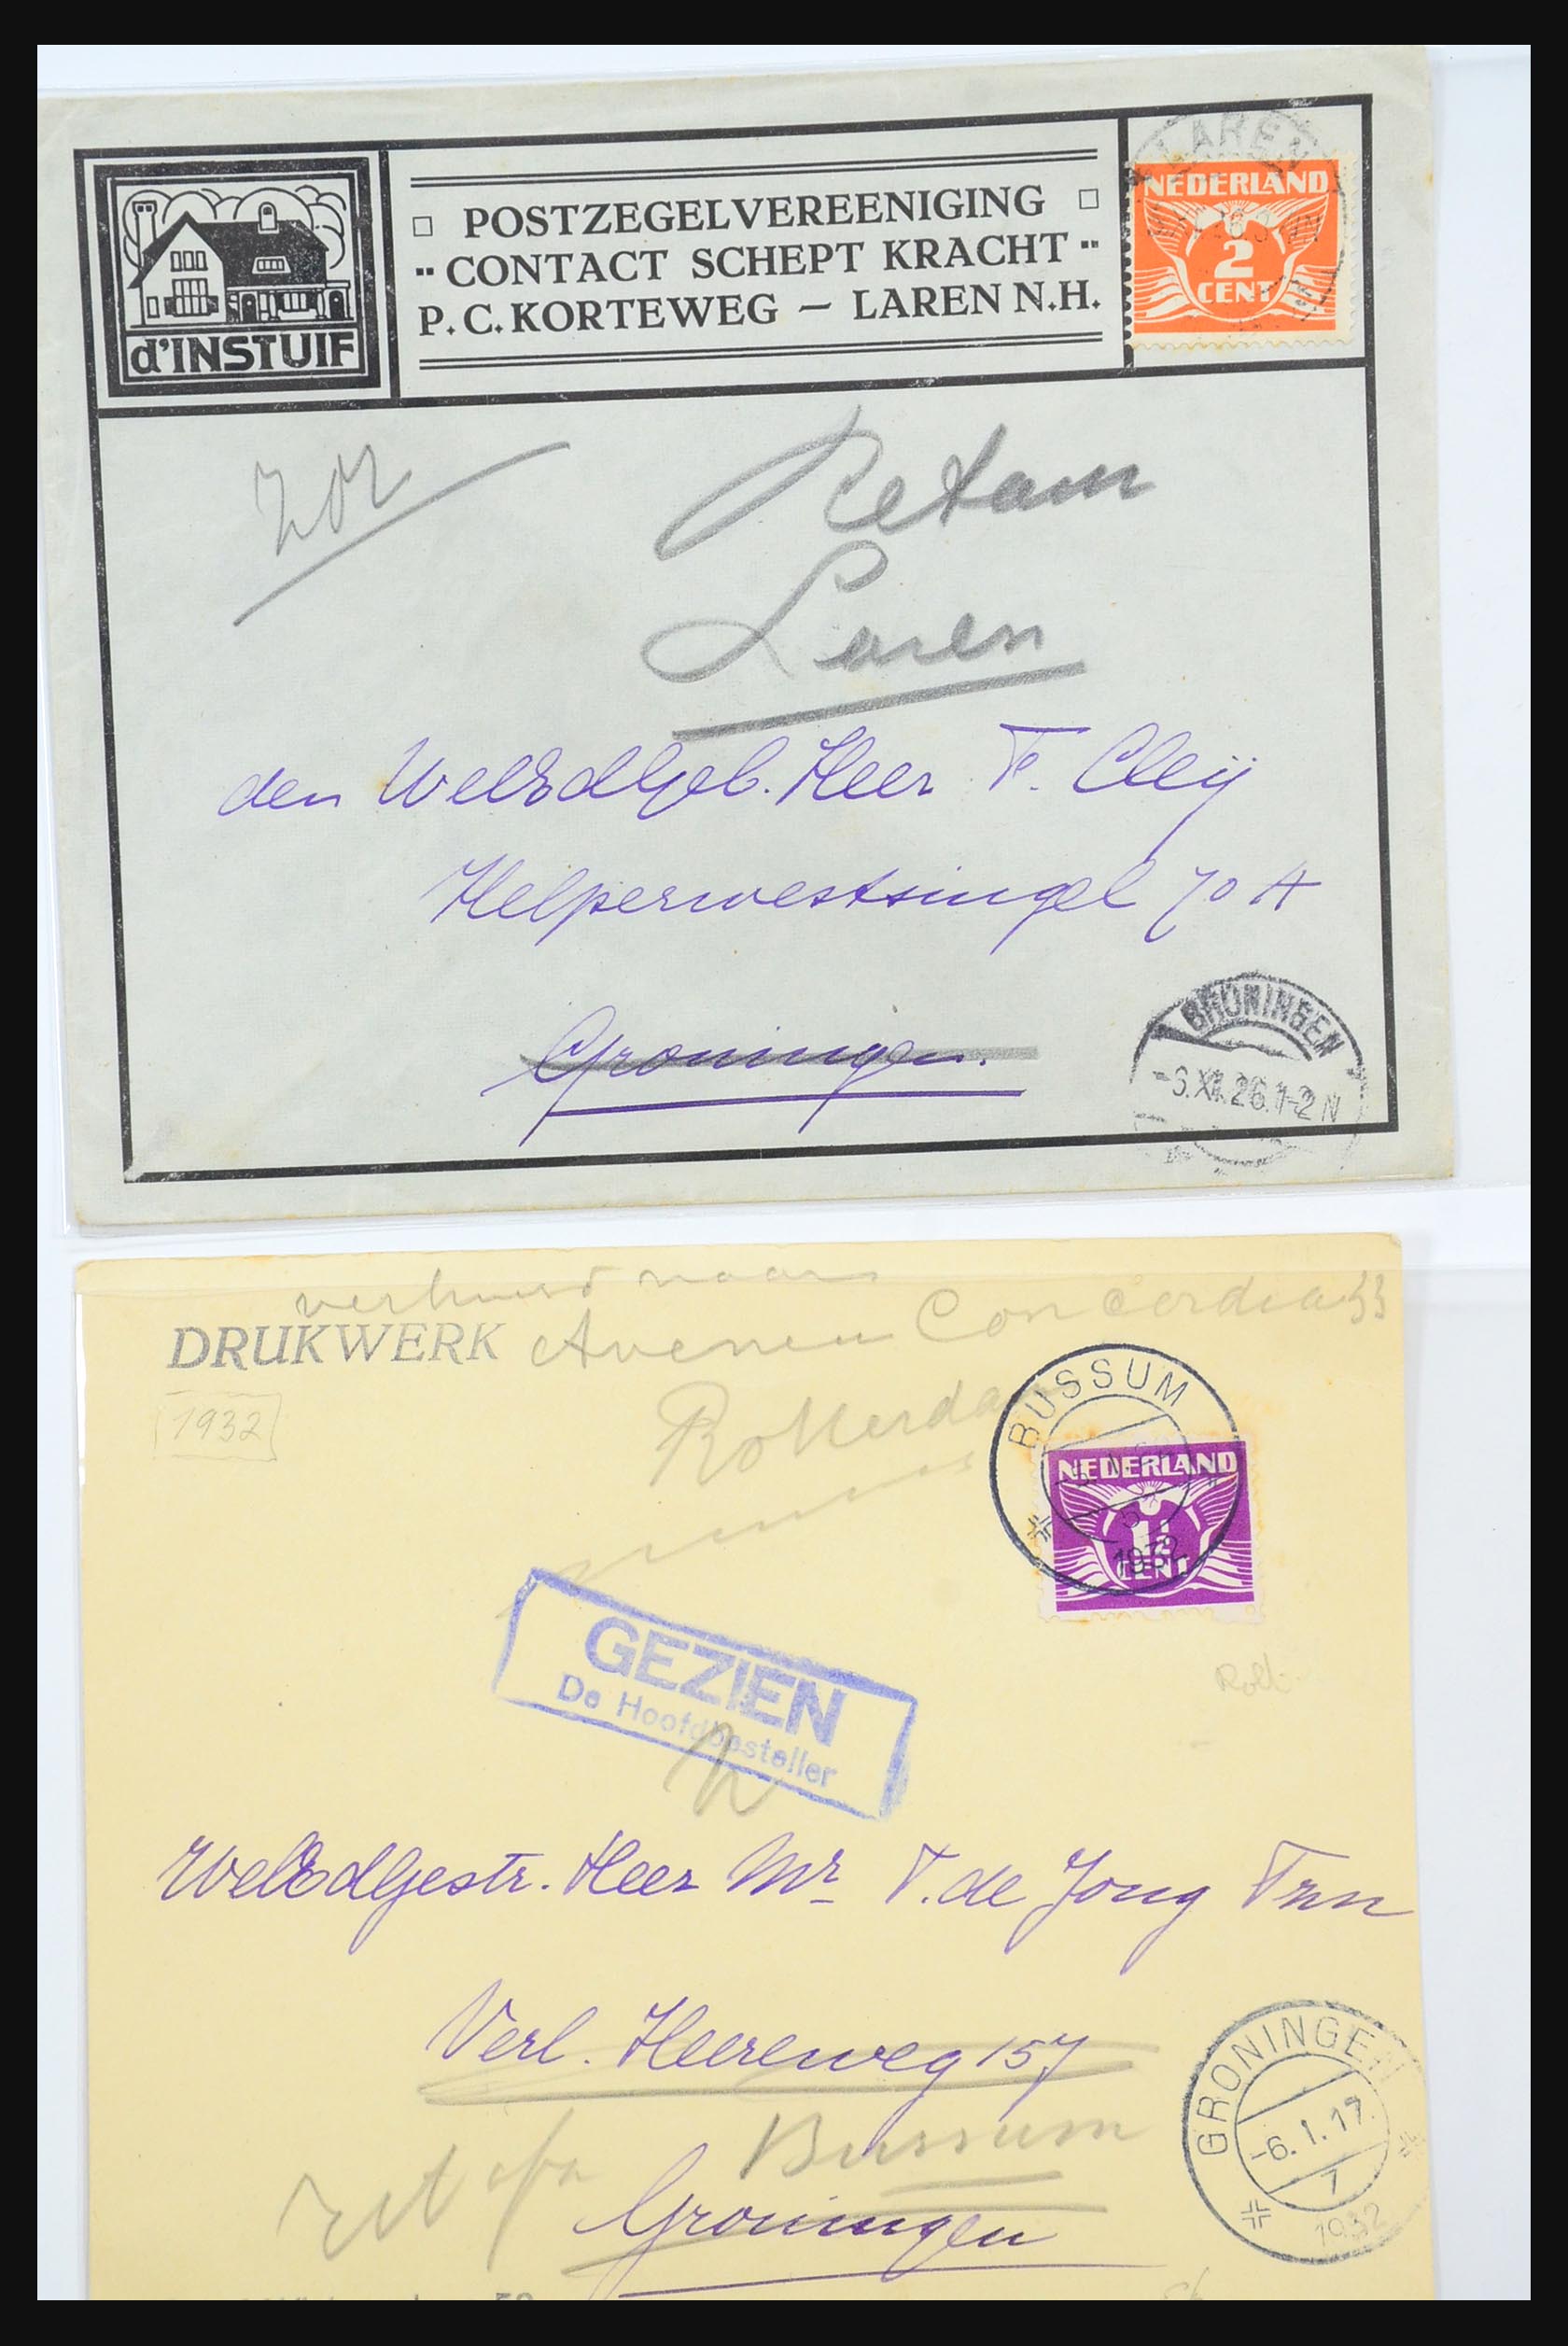 LAREN
NEDERLAND
2
CENT
□ POSTZEGELVEREENIGING □
" CONTACT SCHEPT KRACHT "
P.C. KORTEWEG — LAREN N.H.
d'INSTUIF
Retour
Laren
den WelEdlGeb. Heer F. Cleij
Helperwestsingel 70 A
Groningen.
GRONINGEN
-3.XI.26.1-2N
verhuisd naar
DRUKWERK Avenue Concordia 33
1932
Rotterdam
BUSSUM
NEDERLAND
1½
CENT
1932
GEZIEN
De Hoofdbesteller
Rott.
WelEdlGestr. Heer Mr T. de Jong Tzn
Verl. Heereweg 157
ret afz Bussum
Groningen
GRONINGEN
-6.1.17.
1932